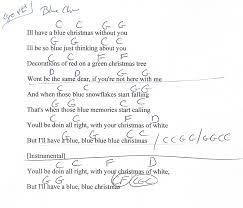 Blue
C C G G
Ill have a blue christmas without you
G G C C
Ill be so blue just thinking about you
C C F F
Decorations of red on a green christmas tree
D D G G
Wont be the same dear, if you're not here with me
C C G G
And when those blue snowflakes start falling
G G C C
That's when those blue memories start calling
C C F D
Youll be doin all right, with your christmas of white
G G C C
But I'll have a blue, blue blue blue christmas / C C G C / G G C C
[Instrumental]
C C F D
Youll be doin all right, with your christmas of white,
G G
But I'll have a blue, blue christmas